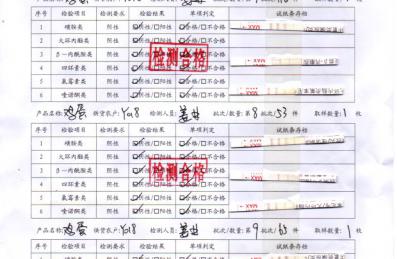 序号 检验项目 检测要求 检验结果 单项判定 试纸条存档
1 磺胺类 阴性 ☑阴性/☐阳性 ☑合格/☐不合格
2 大环内酯类 阴性 ☑阴性/☐阳性 ☑合格/☐不合格
3 β-内酰胺类 阴性 ☑阴性/☐阳性 ☑合格/☐不合格
4 四环素类 阴性 ☑阴性/☐阳性 ☑合格/☐不合格
5 氯霉素类 阴性 ☑阴性/☐阳性 ☑合格/☐不合格
6 喹诺酮类 阴性 ☑阴性/☐阳性 ☑合格/☐不合格
检测合格
MAX
产品名称: 鸡蛋 供货农户: Ya8 检测人员: 批次/数量: 第 8 批次/ 53 件 取样数量: 1 枚
序号 检验项目 检测要求 检验结果 单项判定 试纸条存档
1 磺胺类 阴性 ☑阴性/☐阳性 ☑合格/☐不合格
2 大环内酯类 阴性 ☑阴性/☐阳性 ☑合格/☐不合格
3 β-内酰胺类 阴性 ☑阴性/☐阳性 ☑合格/☐不合格
4 四环素类 阴性 ☑阴性/☐阳性 ☑合格/☐不合格
5 氯霉素类 阴性 ☑阴性/☐阳性 ☑合格/☐不合格
6 喹诺酮类 阴性 ☑阴性/☐阳性 ☑合格/☐不合格
检测合格
MAX
产品名称: 鸡蛋 供货农户: Ya8 检测人员: 批次/数量: 第 9 批次/ 63 件 取样数量: 1 枚
序号 检验项目 检测要求 检验结果 单项判定 试纸条存档